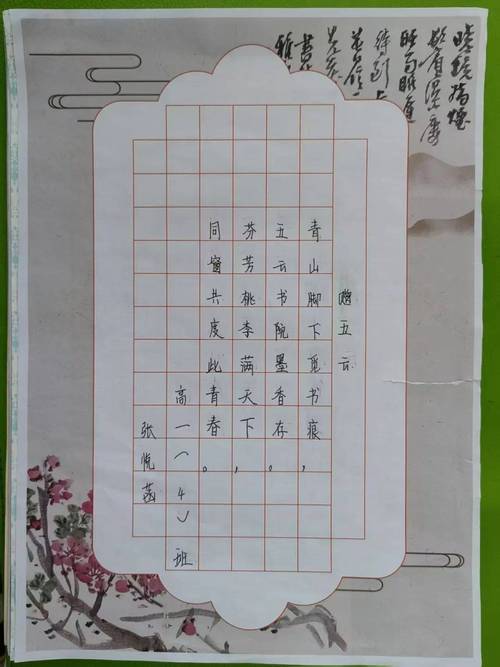 赠五云
青山脚下觅书痕，
五云书院墨香存。
芬芳桃李满天下，
同窗共度此青春。
高一（4）班
张悦菡